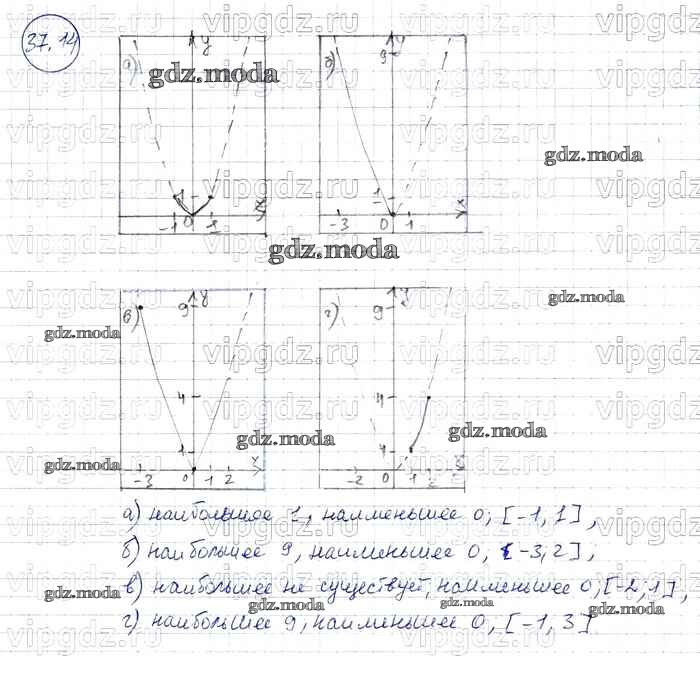 37.14
а) y
1
-1 0 1 x
б) 9 y
1
-3 0 1 x
в) 9 y
4
1
-3 0 1 2 x
г) 9 y
4
1
-2 0 1 2 x
а) наибольшее 1, наименьшее 0; [-1, 1],
б) наибольшее 9, наименьшее 0, [-3; 2],
в) наибольшее не существует, наименьшее 0; [-2; 1],
г) наибольшее 9, наименьшее 0, [-1, 3]
vipgdz.ru
gdz.moda